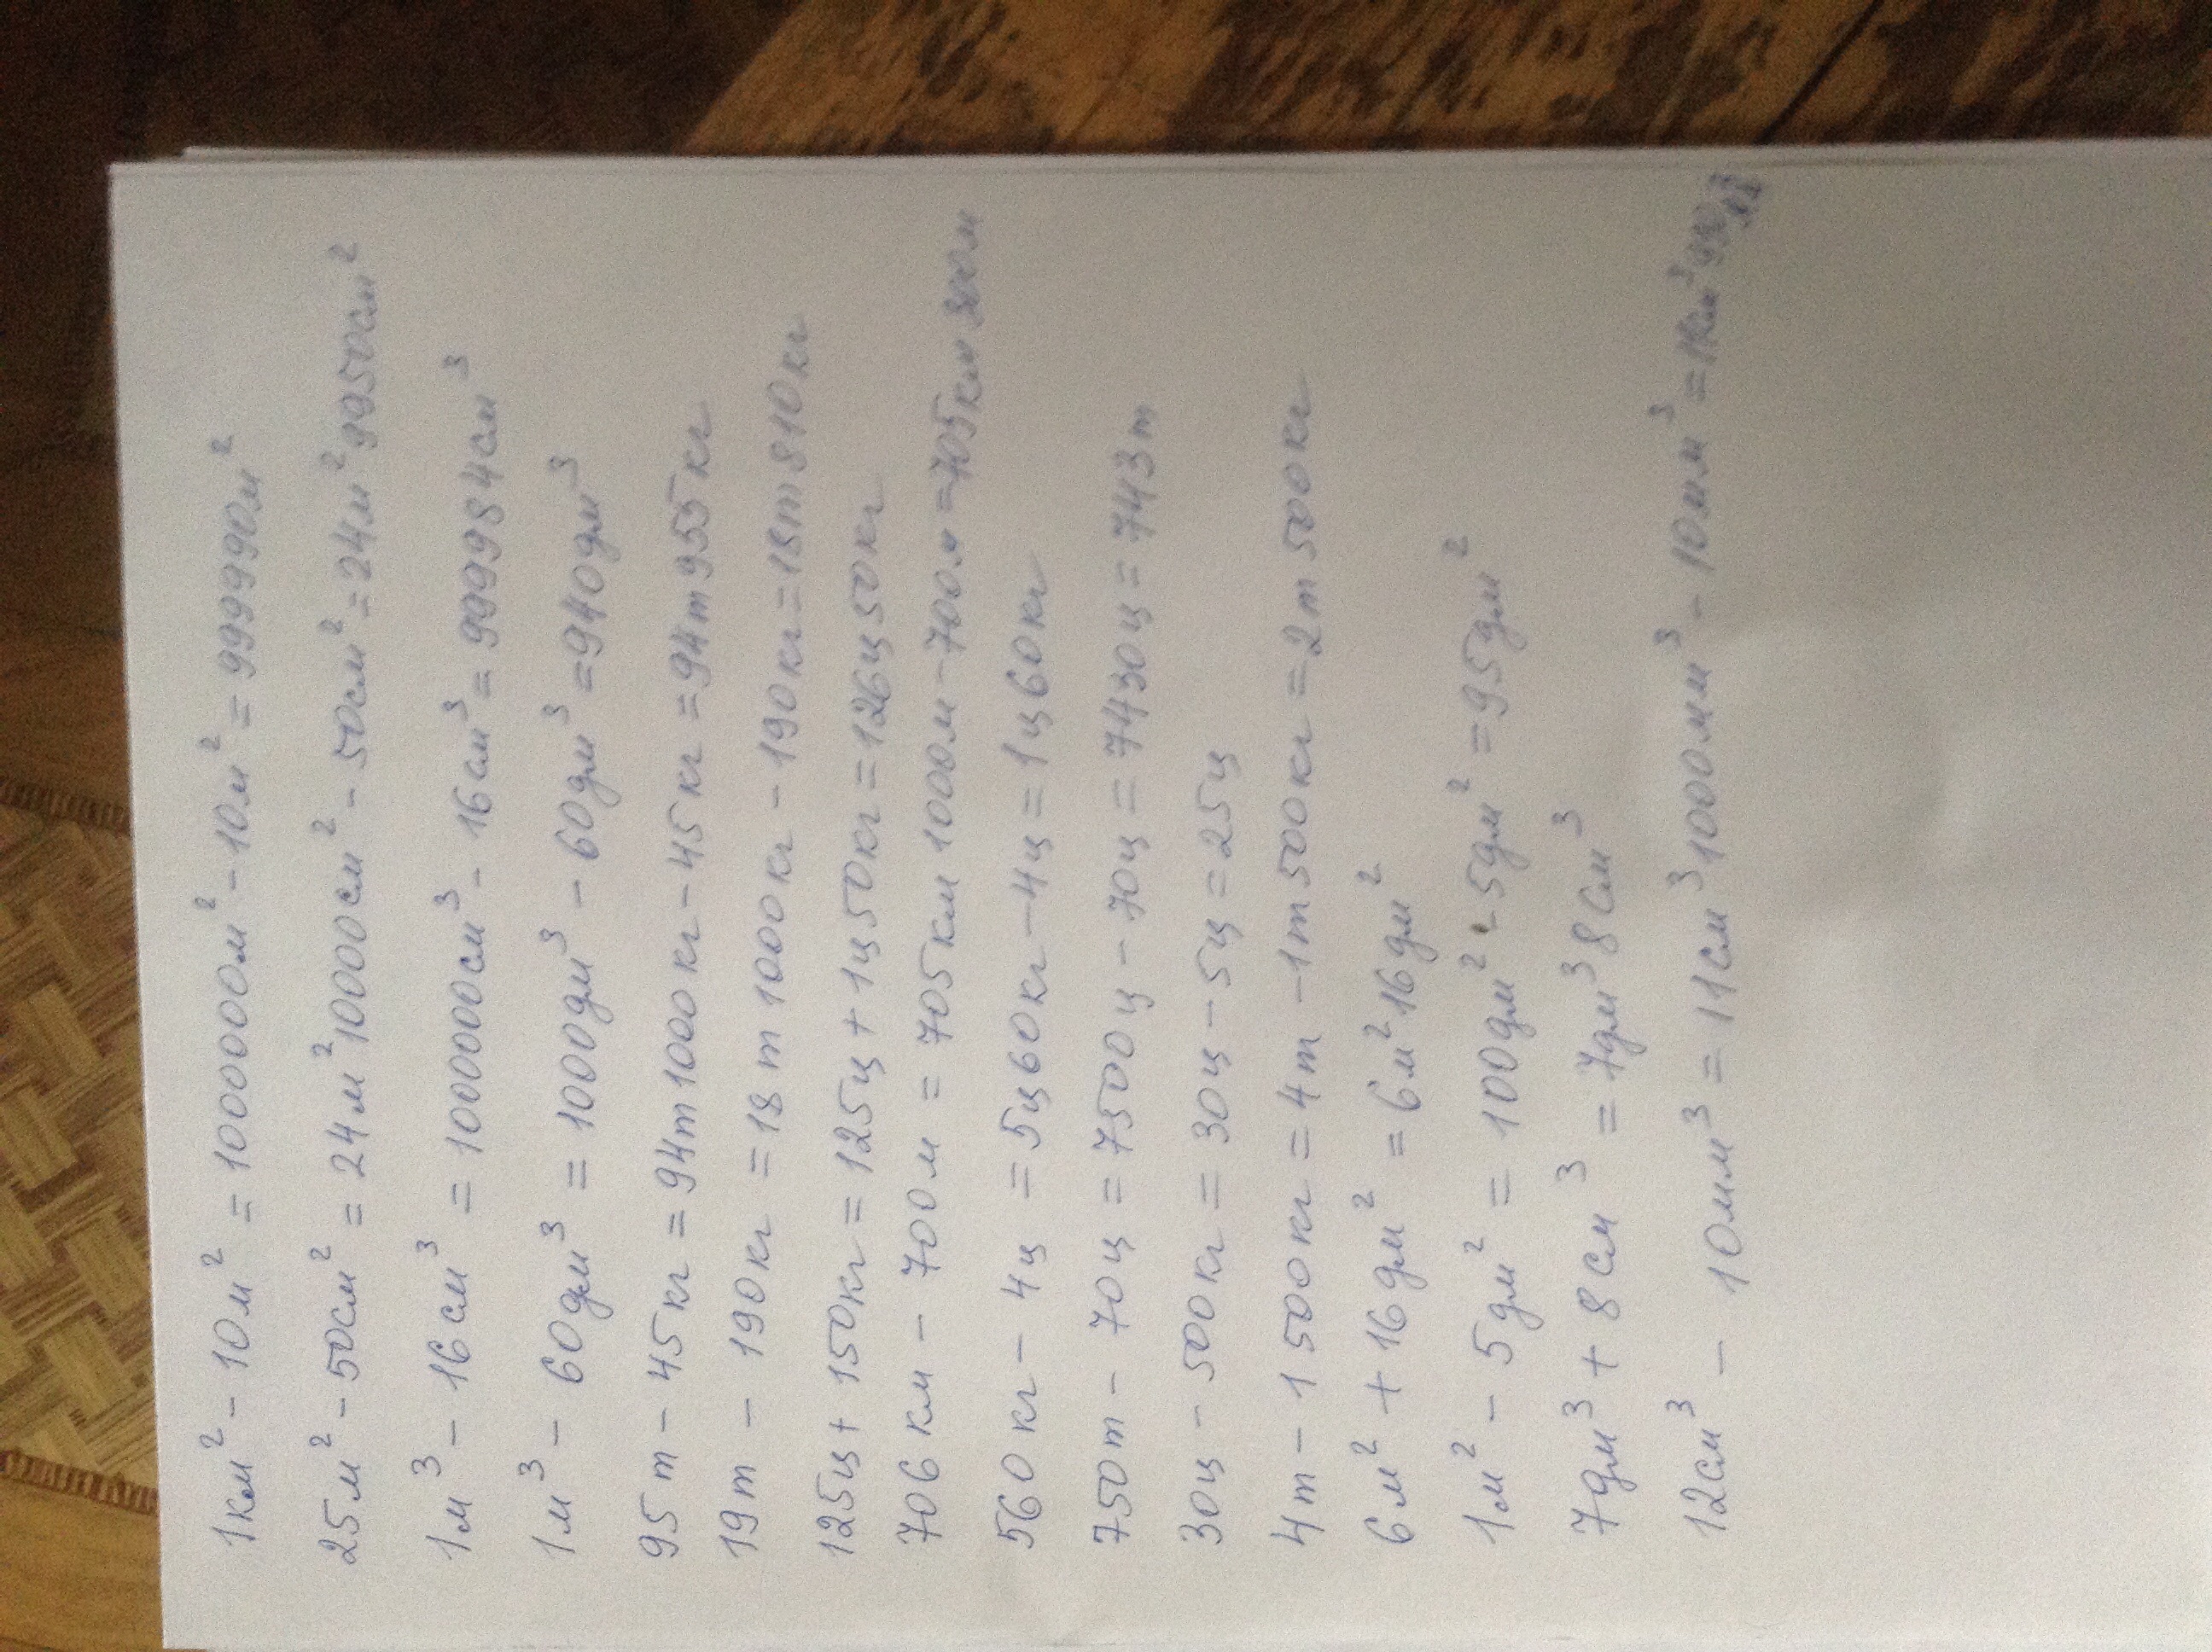 1км² - 10м² = 1000000м² - 10м² = 999990м²
25м² - 50см² = 24м² 10000см² - 50см² = 24м² 9950см²
1м³ - 16см³ = 1000000см³ - 16см³ = 999984см³
1м³ - 60дм³ = 1000дм³ - 60дм³ = 940дм³
95т - 45кг = 94т 1000кг - 45кг = 94т 955кг
19т - 190кг = 18т 1000кг - 190кг = 18т 810кг
125ц + 150кг = 125ц + 1ц 50кг = 126ц 50кг
706км - 700м = 705км 1000м - 700м = 705км 300м
560кг - 4ц = 5ц 60кг - 4ц = 1ц 60кг
750т - 70ц = 7500ц - 70ц = 7430ц = 743т
30ц - 500кг = 30ц - 5ц = 25ц
4т - 1500кг = 4т - 1т 500кг = 2т 500кг
6м² + 16дм² = 6м² 16дм²
1м² - 5дм² = 100дм² - 5дм² = 95дм²
7дм³ + 8см³ = 7дм³ 8см³
12см³ - 10мм³ = 11см³ 1000мм³ - 10мм³ =